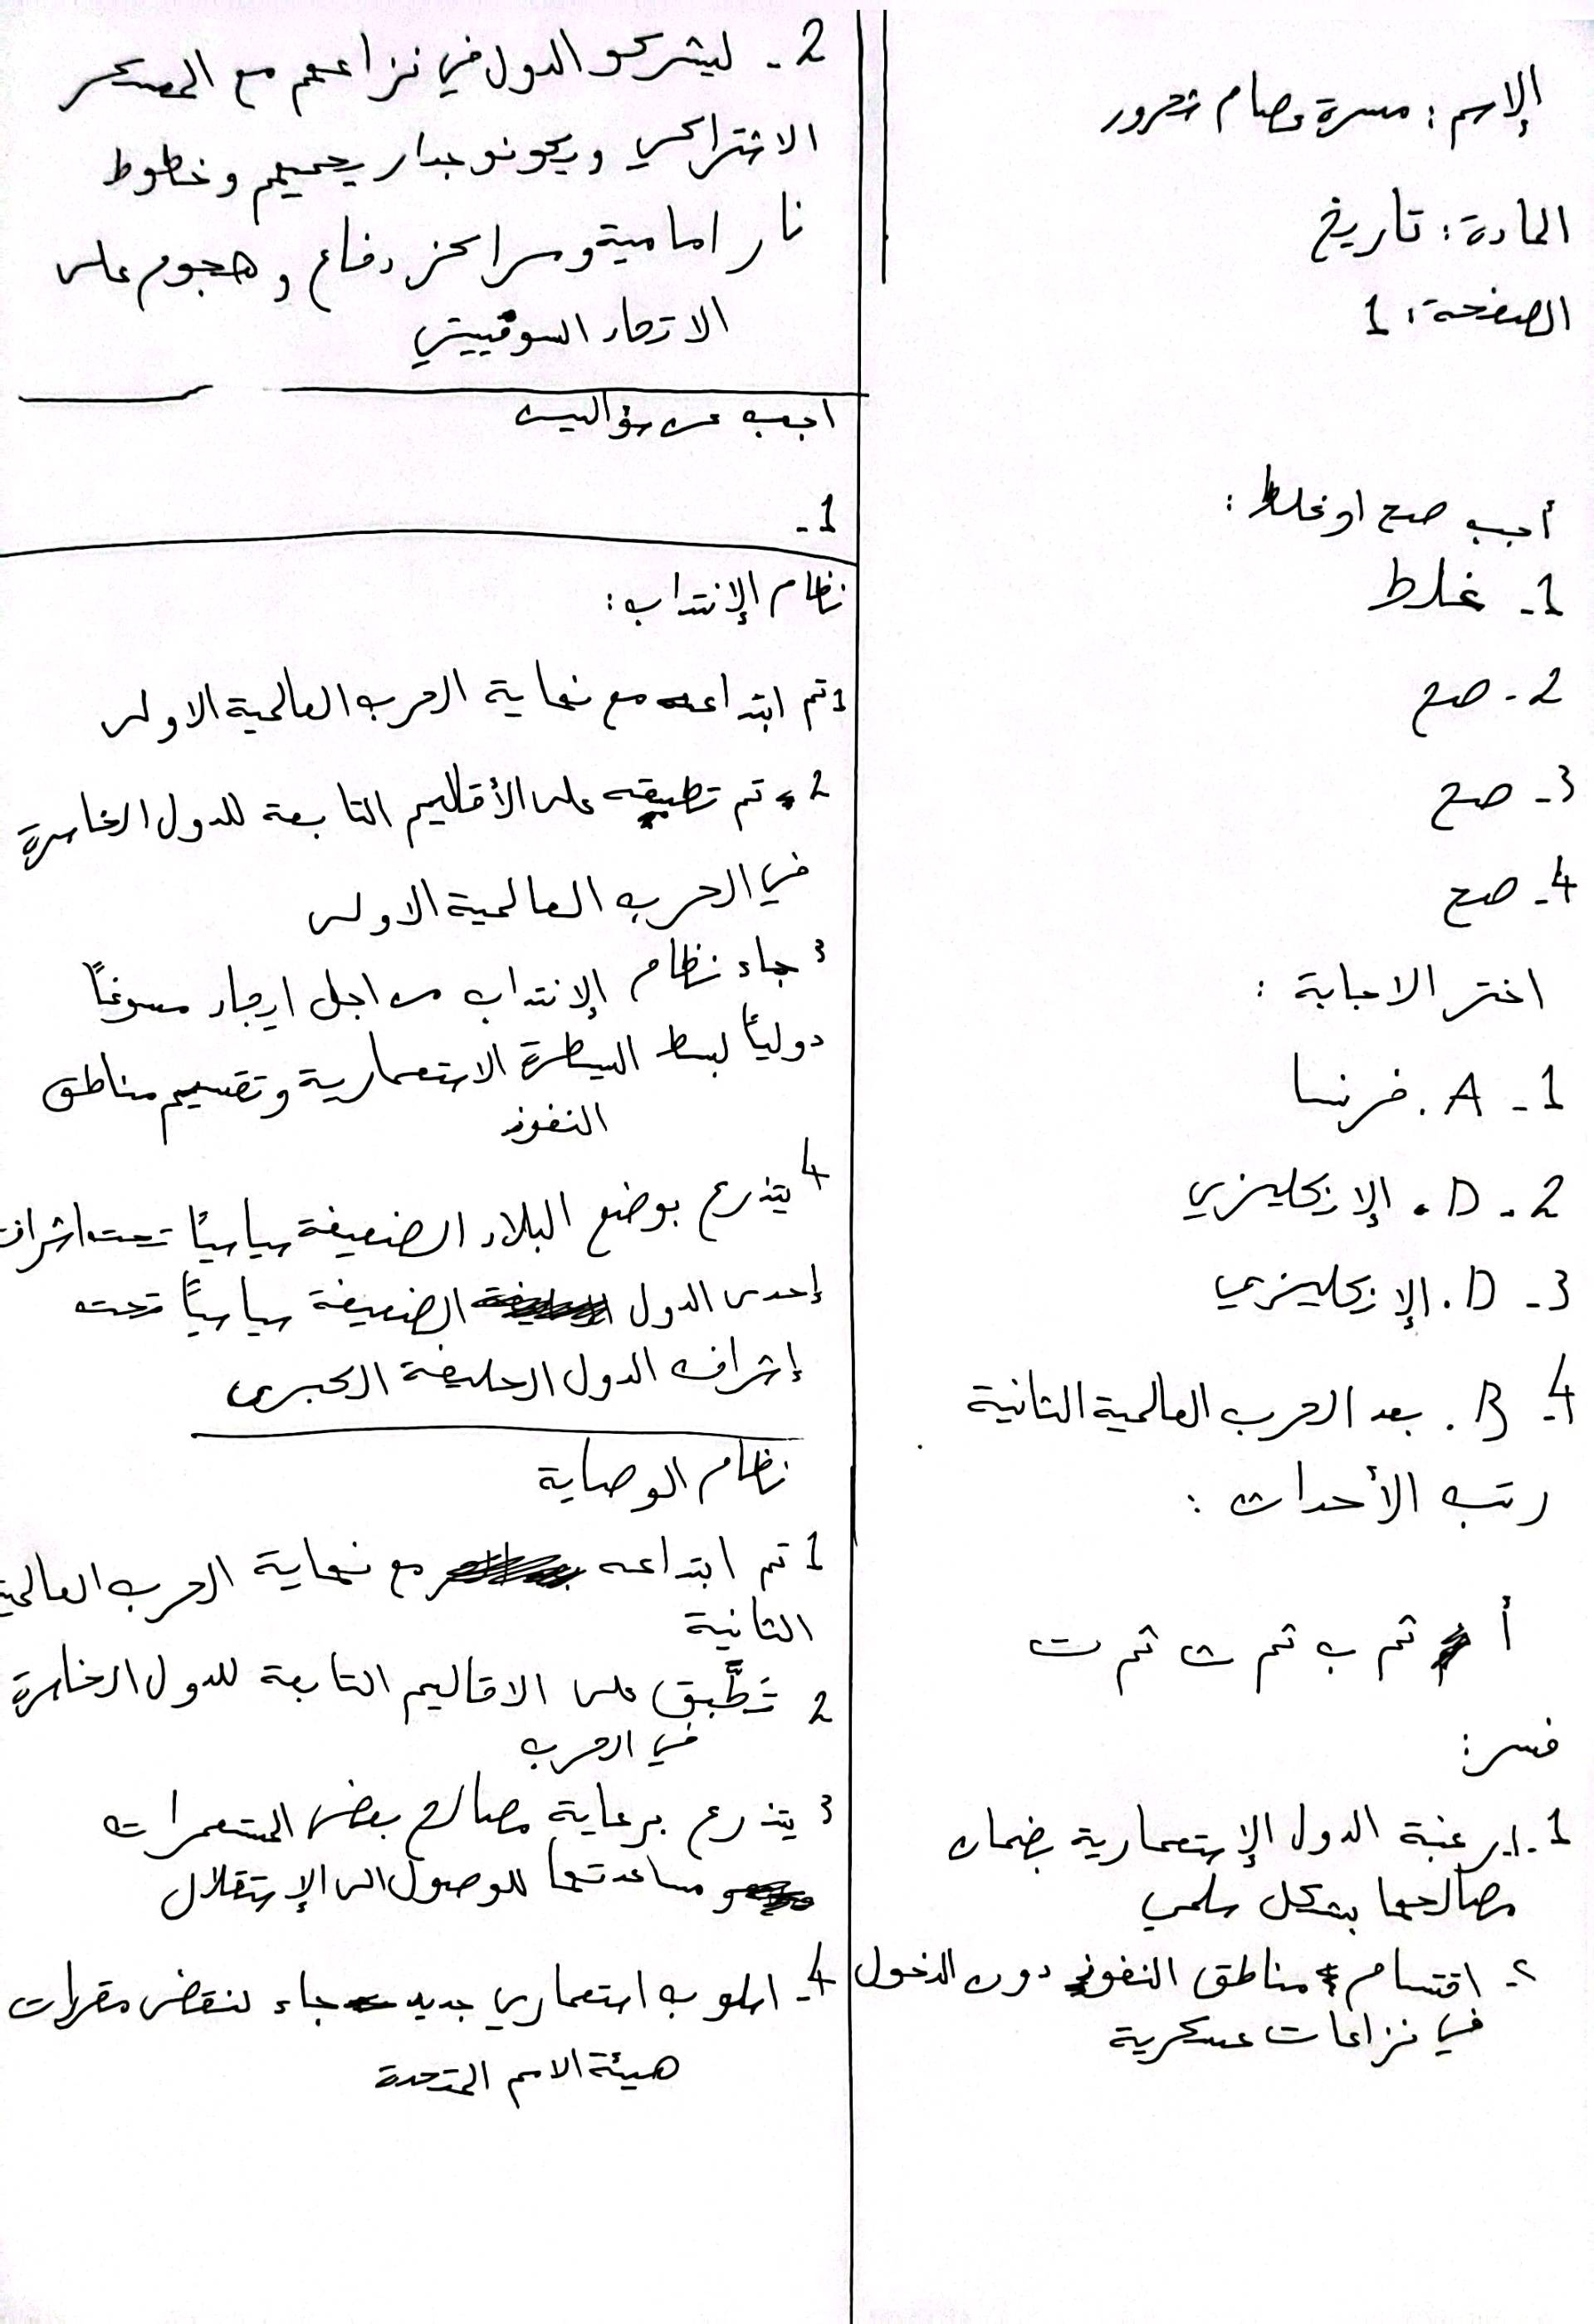 الإسم : مسرة عصام شحرور
المادة : تاريخ
الصفحة : 1
أجب صح او غلط :
1- غلط
2- صح
3- صح
4- صح
اختر الاجابة :
1- A. فرنسا
2- D. الإنكليزي
3- D. الإنكليزي
4- B. بعد الحرب العالمية الثانية
رتب الأحداث :
أ ثم ب ثم ث ثم ت
فسر :
1-1. رغبة الدول الإستعمارية بضمان
مصالحها بشكل سلمي
2- اقتسام مناطق النفوذ دون الدخول
في نزاعات عسكرية
2- ليشركو الدول في نزاعهم مع المعسكر
الاشتراكي ويكونو جدار يحميهم وخطوط
نار امامية ومراكز دفاع و هجوم على
الاتحاد السوفييتي
اجب عن سؤالين
1-
نظام الإنتداب :
1 تم ابتداعه مع نهاية الحرب العالمية الاولى
2- تم تطبيقه على الأقاليم التابعة للدول الخاسرة
في الحرب العالمية الاولى
3 جاء نظام الإنتداب من اجل ايجاد مسوغاً
دولياً لبسط السيطرة الاستعمارية وتقسيم مناطق
النفوذ
4 يتذرع بوضع البلاد الضعيفة سياسياً تحت اشراف
إحدى الدول الضعيفة سياسياً تحت
إشراف الدول الحليفة الكبرى
نظام الوصاية
1 تم ابتداعه مع نهاية الحرب العالمية
الثانية
2 تَطَّبق على الاقاليم التابعة للدول الخاسرة
في الحرب
3 يتذرع برعاية مصالح بعض المستعمرات
و مساعدتها للوصول الى الإستقلال
4- اسلوب استعماري جديد جاء لنقض مقررات
هيئة الامم المتحدة